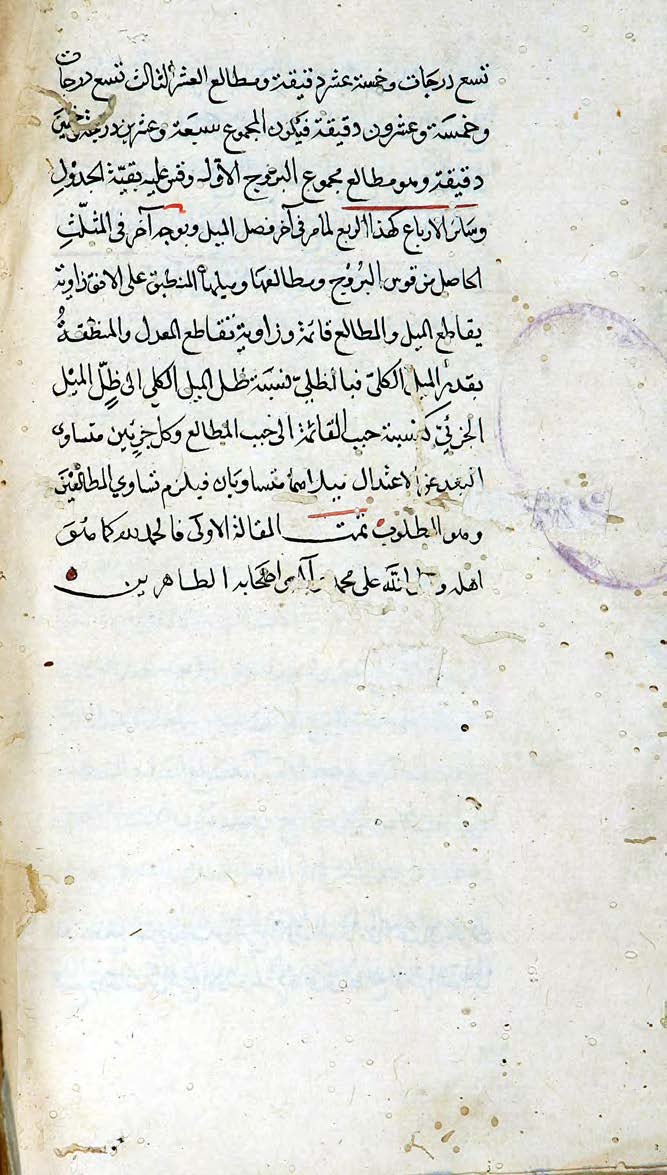 تسع درجات وخمسة عشر دقيقة ومطالع العشر الثالث تسع درجات
وخمسة وعشرون دقيقة فيكون المجموع سبعة وعشرين درجة وخمسين
دقيقة وهو مطالع مجموع البروج الاولى وقس عليه بقية الجدول
وسائر الارباع كهذا الربع لما مر في آخر فصل الميل وبوجه آخر في المثلث
الحاصل من قوس البروج ومطالعها وميلها المنطبق على الافق زاوية
يقاطع الميل والمطالع قائمة وزاوية تقاطع المعدل والمنطقة
بقدر الميل الكلي فبالظلي نسبة ظل الميل الكلي الى ظل الميل
الجزئي كنسبة جيب القائمة الى جيب المطالع وكل جزئين متساوى
البعد عن الاعتدال ميلاهما متساويان فيلزم تساوي المطالعين
وهو المطلوب تمت المقالة الاولى فالحمد لله كما هو
اهله و الله على محمد واصحابه الطاهرين